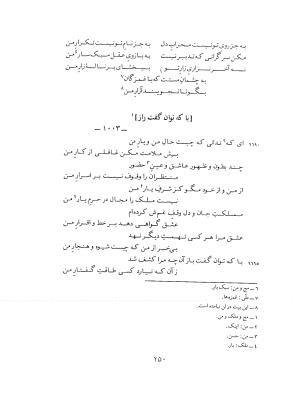 به جز روی تو نیست محراب دل به جز نام تو نیست تکرار من
مکن سرگرانی که تدبیر نیست به بازوی عقل سبک‌سار⁶ من
نه آخر نزاری زارتوم ببخشای بر نالۀ زار من
به چشمان مستت که با غمزگان⁷
بگو تا نجویند آزار من⁸
[با که توان گفت راز]¹
— ۱۰۰۳ —
۷۶۹۰ ای که² ندانی که چیست حال من و یار من
بیش ملامت مکن غافلی از کار من
چند بطون و ظهور عاشق و عین³ حضور
منتظران را وقوف نیست بر اسرار من
از من و از خود مگو کز شرف یار⁴ من
نیست ملک را مجال در حرم یار من
مملکت جان و دل وقف غمش کرده‌ام
عشق گواهی دهد بر خط و اقرار من
عشق مرا هر کسی تهمت دیگر نهد
بی‌خبر از من که چیست شود و هنجار من
۷۶۹۵ با که توان گفت باز آن چه مرا کشف شد
ز آن که نیارد کسی طاقت گفتار من
۶ـ مج و من: سبک بار.
۷ـ ملّی: غمزه‌ها.
۸ـ این بیت در لن نیامده است.
۱ـ مج و ملک و من.
۲ـ من: اینک.
۳ـ من: حسن.
۴ـ ملک: بار.
۲۵۰